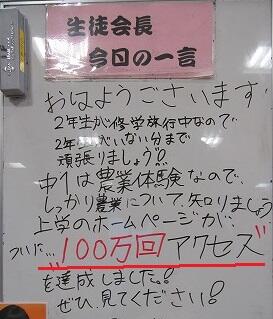 生徒会長
今日の一言
おはようございます!
2年生が修学旅行中なので
2年生がいない分まで
頑張りましょう!!
中1は農業体験なので、
しっかり農業について、知りましょう
上学のホームページが、
ついに…"100万回アクセス"
を達成しました!!
ぜひ、見てください!!